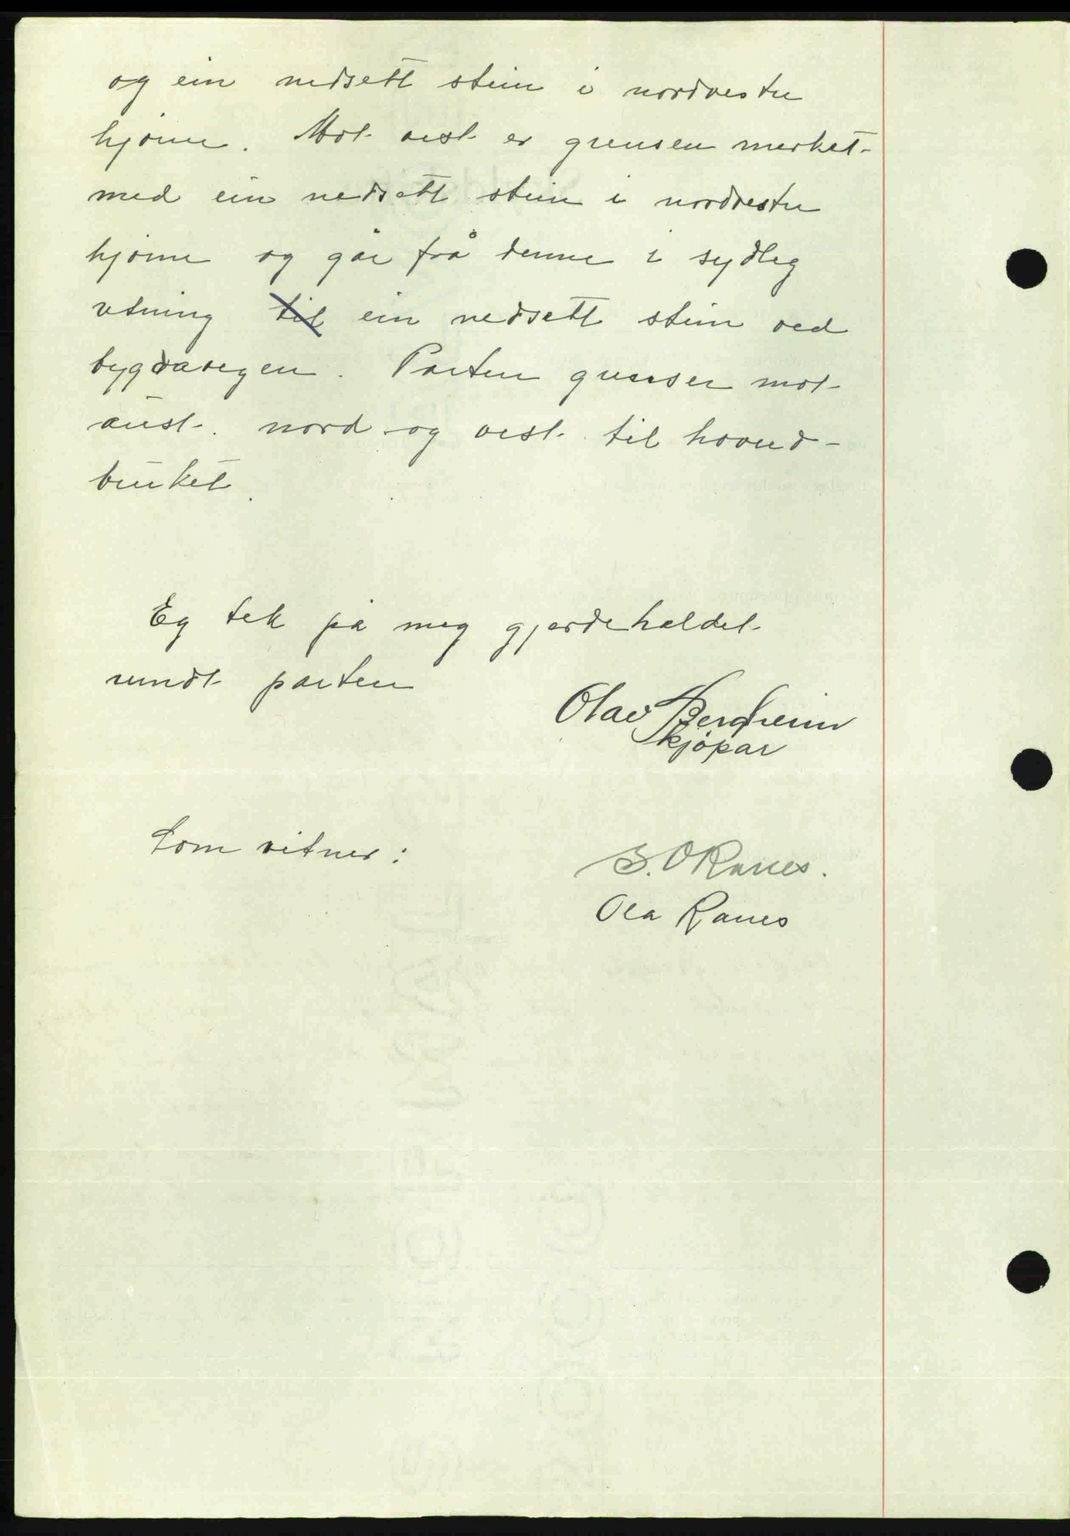 og ein nedsett stein i nordvestre
hjørne. Mot vest er grensen merket
med ein nedsett stein i nordvestre
hjørne og går frå denne i sydleg
retning til ein nedsett stein ved
bygdavegen. Parten grenser mot
aust. nord og vest til hovud-
bruket.
Eg tek på meg gjerdehaldet
rundt parten
Olav Bergheim
kjøpar
Som vitner:
S. O Ranes.
Ola Ranes